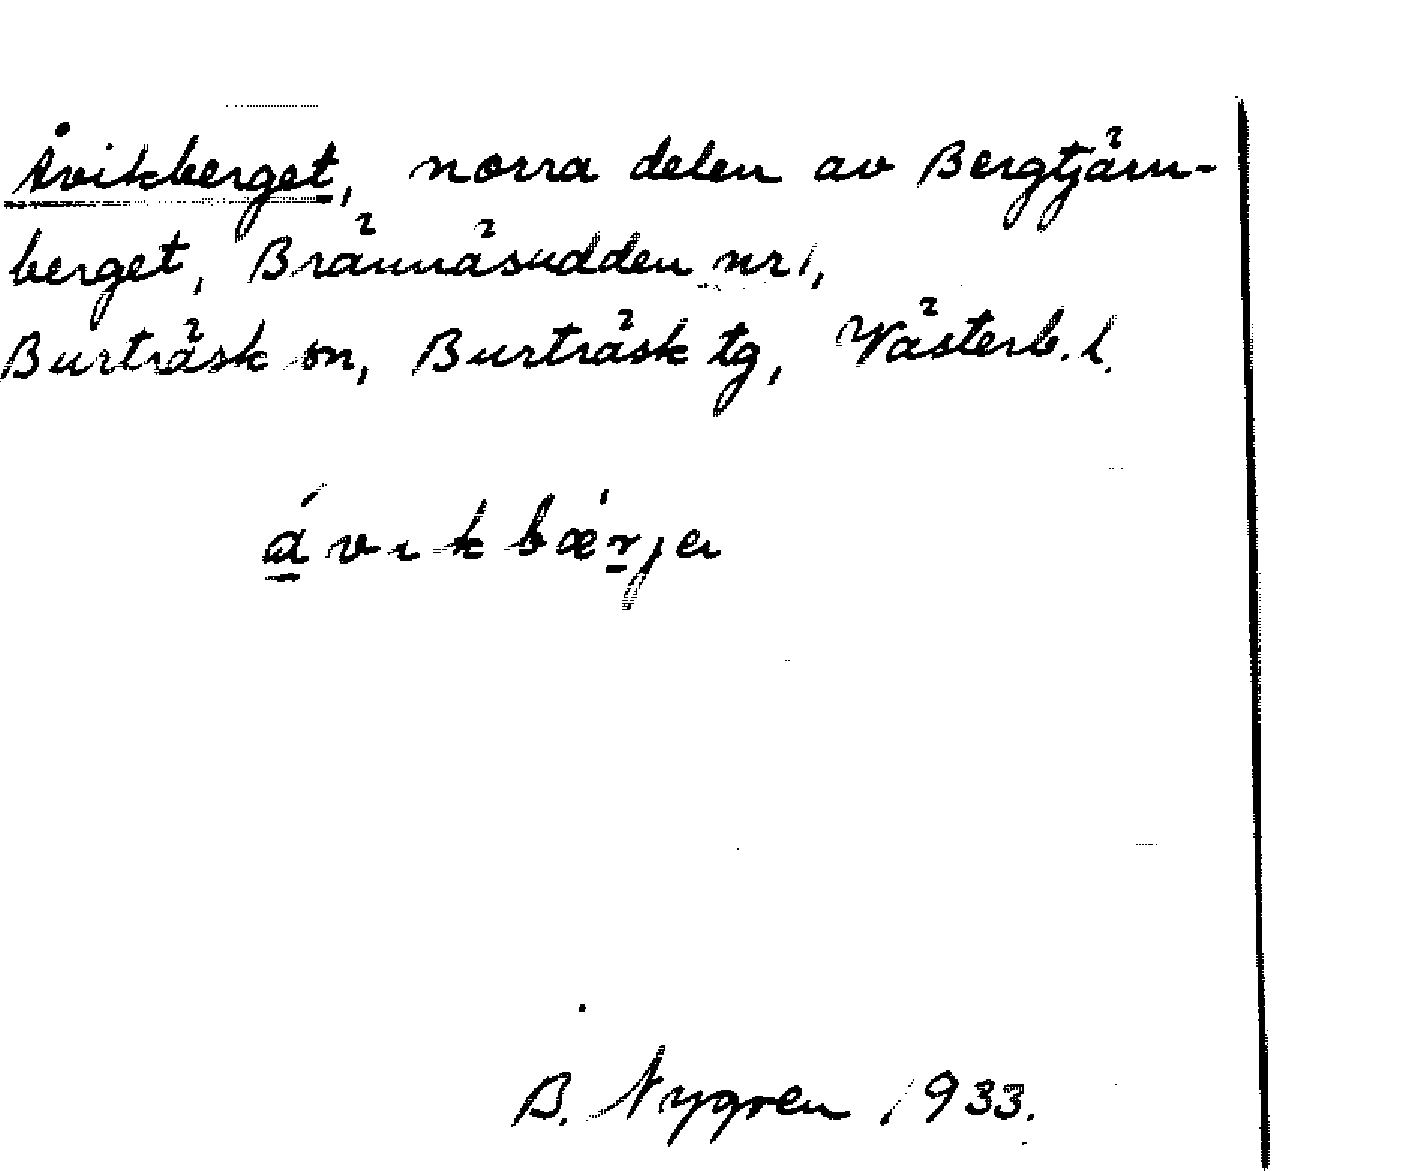 Åvikberget, norra delen av Bergtjärn-
berget, Brännäsudden nr 1,
Burträsk sn, Burträsk tg, Västerb. l.
ávikbǽrja
B. Nygren 1933.